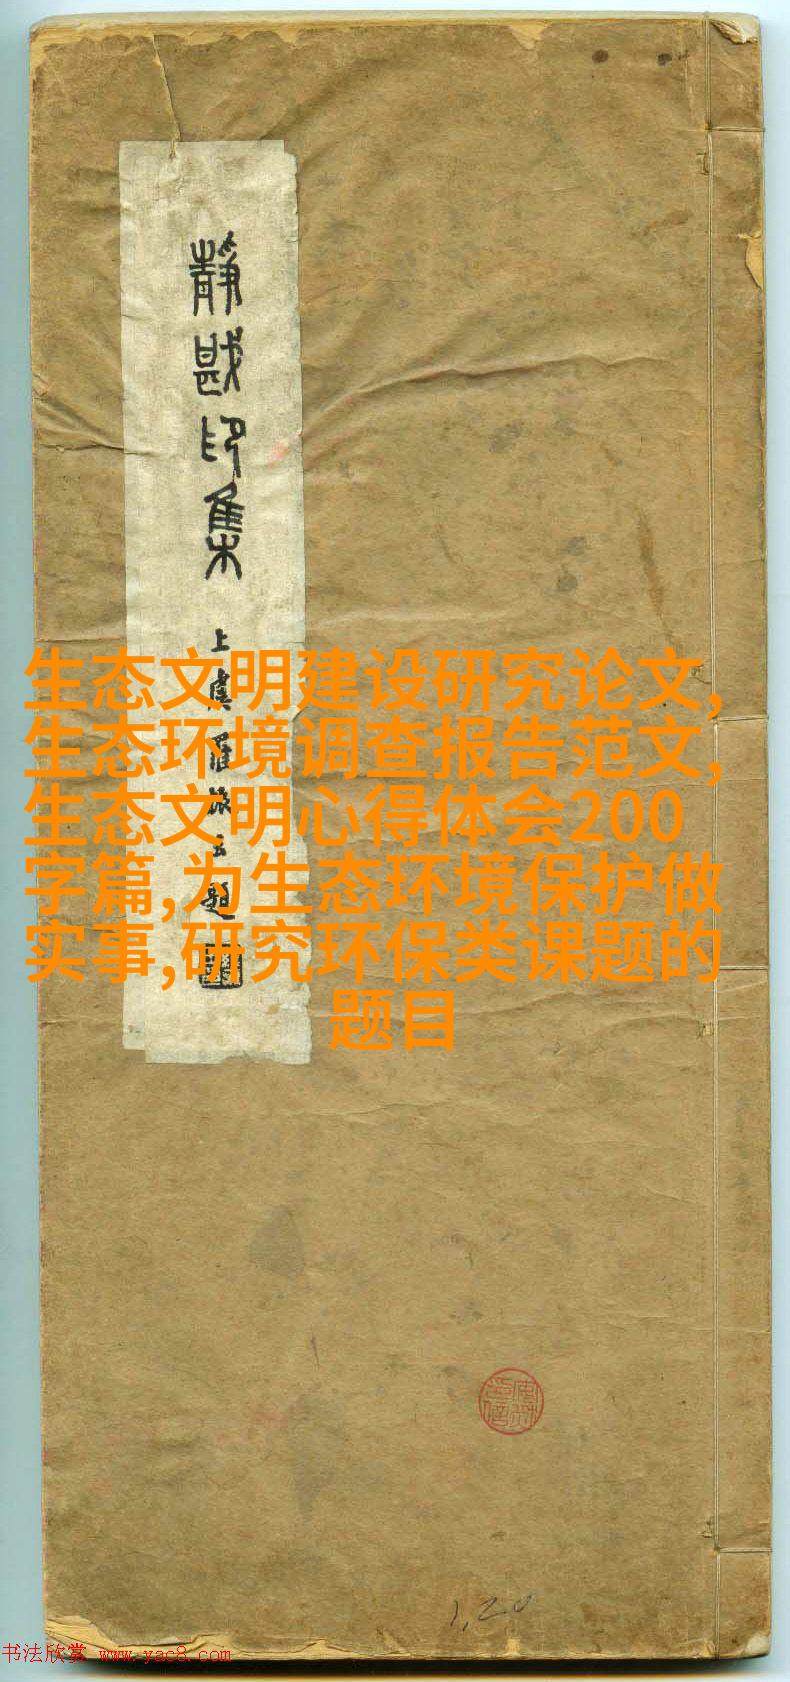 靜戡印集
上虞羅振玉題
生态文明建设研究论文,
生态环境调查报告范文,
生态文明心得体会200
字篇,为生态环境保护做
实事,研究环保类课题的
题目
1,20
书法欣赏 www.yac8.com